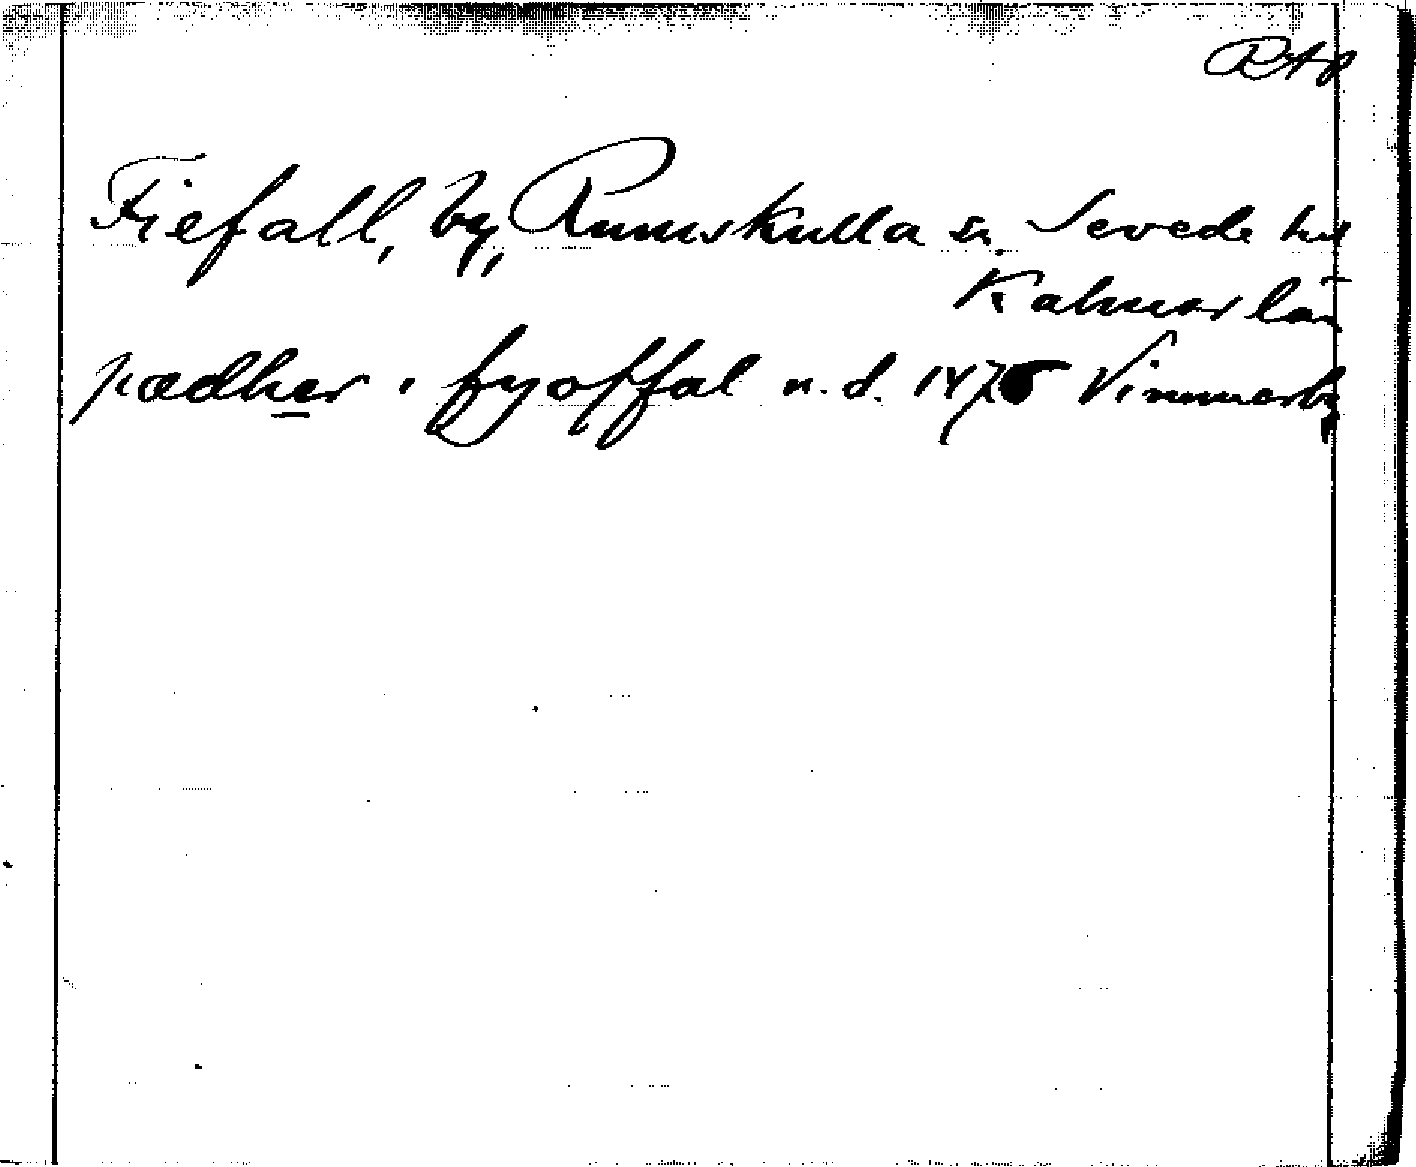 RAp
Fiefall, by, Rumskulla sn. Sevede hd
Kalmar län
pædher i fyoffal n. d. 1475 Vimmerby